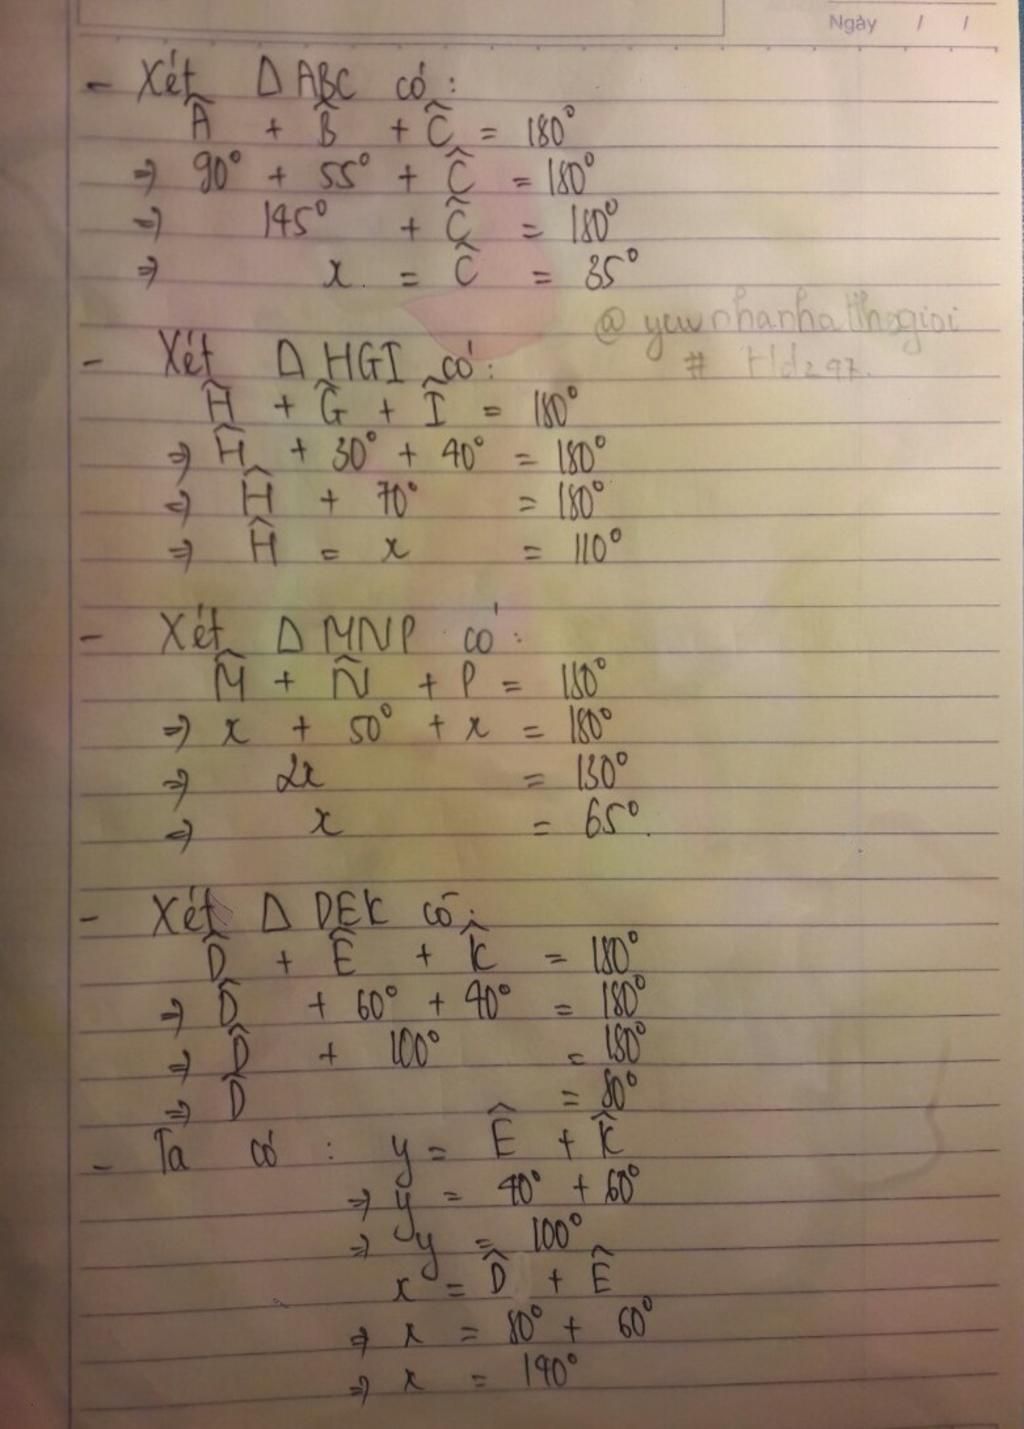 Ngày / /
- Xét Δ ABC có:
Â + B̂ + Ĉ = 180°
=> 90° + 55° + Ĉ = 180°
=> 145° + Ĉ = 180°
=> x = Ĉ = 35°
@yuunhanhatthegioi
- Xét Δ HGI có:
# Hd297.
Ĥ + Ĝ + Î = 180°
=> Ĥ + 30° + 40° = 180°
=> Ĥ + 70° = 180°
=> Ĥ = x = 110°
- Xét Δ MNP có:
M̂ + N̂ + P = 180°
=> x + 50° + x = 180°
=> 2x = 130°
=> x = 65°.
- Xét Δ DEK có:
D̂ + Ê + K̂ = 180°
=> D̂ + 60° + 40° = 180°
=> D̂ + 100° = 180°
=> D̂ = 80°
- Ta có : y = Ê + K̂
=> y = 40° + 60°
=> y = 100°
x = D̂ + Ê
=> x = 80° + 60°
=> x = 140°